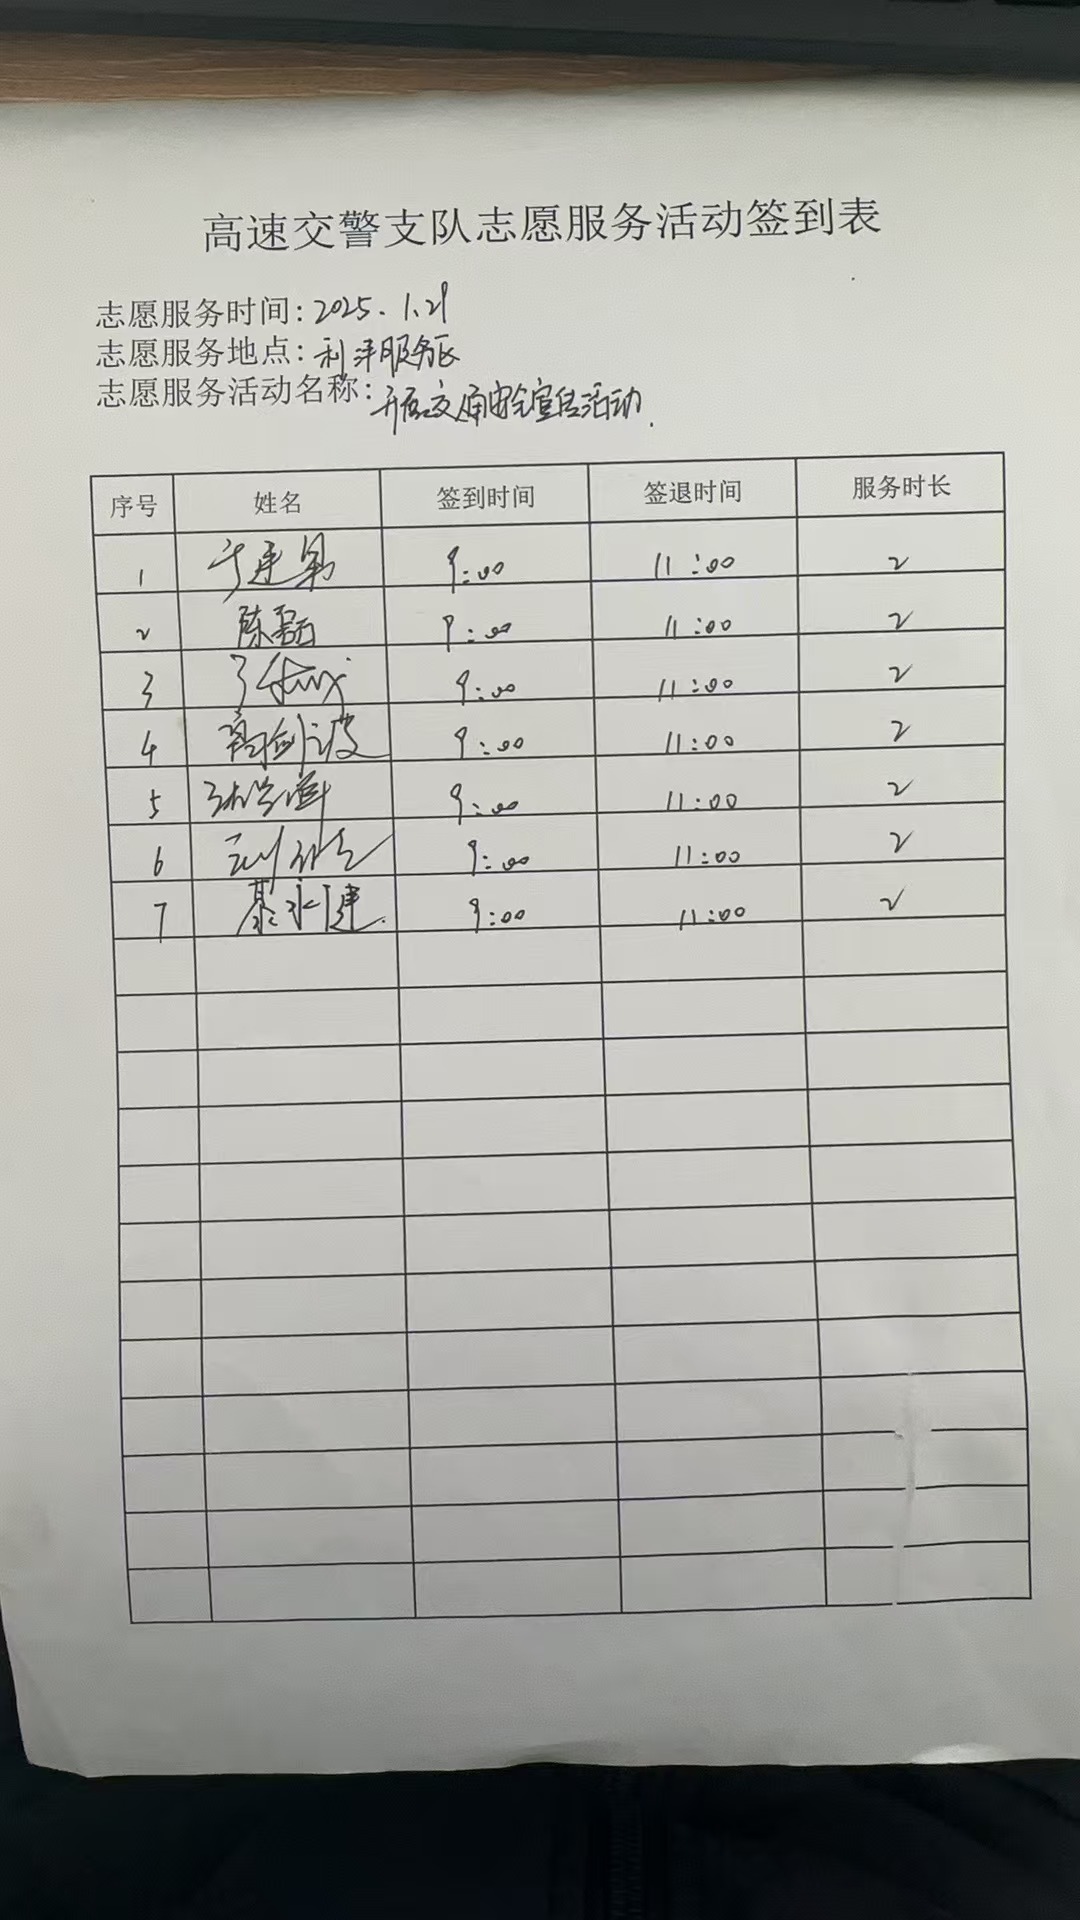 高速交警支队志愿服务活动签到表
志愿服务时间：2025.1.21
志愿服务地点：利津服务区
志愿服务活动名称：开展交通安全宣传活动.
序号 姓名 签到时间 签退时间 服务时长
1 9:00 11:00 2
2 陈磊 9:00 11:00 2
3 9:00 11:00 2
4 高剑波 9:00 11:00 2
5 9:00 11:00 2
6 9:00 11:00 2
7 綦永健. 9:00 11:00 2